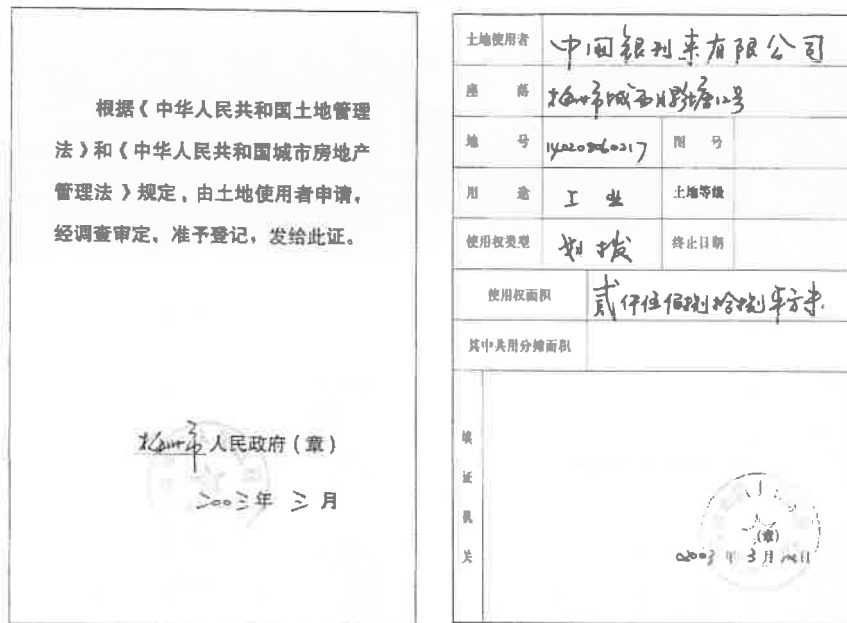 根据《中华人民共和国土地管理
法》和《中华人民共和国城市房地产
管理法》规定，由土地使用者申请，
经调查审定，准予登记，发给此证。
梅州市人民政府（章）
二00三年 三月
土地使用者 中国银利来有限公司
座 落 梅州市城西月影塘12号
地 号 140208060217 图 号
用 途 工业 土地等级
使用权类型 划拨 终止日期
使用权面积 贰仟伍佰捌拾捌平方米
其中共用分摊面积
填证机关
（章）
2003年3月 日